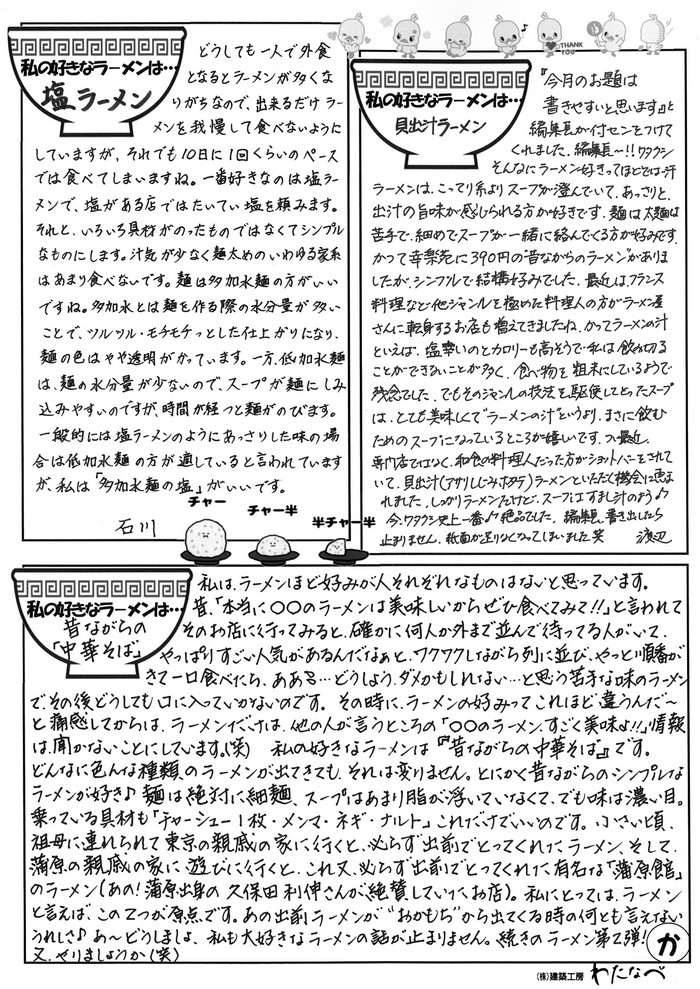 私の好きなラーメンは…
塩ラーメン
どうしても一人で外食
となるとラーメンが多くな
りがちなので、出来るだけラー
メンを我慢して食べないように
していますが、それでも10日に1回くらいのペース
では食べてしまいますね。一番好きなのは塩ラー
メンで、塩がある店ではたいてい塩を頼みます。
それと、いろいろ具材がのったものではなくてシンプル
なものにします。汁気が少なく麺太めのいわゆる家系
はあまり食べないです。麺は多加水麺の方がいい
ですね。多加水とは麺を作る際の水分量が多い
ことで、ツルツル・モチモチっとした仕上がりになり、
麺の色はやや透明がかっています。一方、低加水麺
は、麺の水分量が少ないので、スープが麺にしみ
込みやすいのですが、時間が経つと麺がのびます。
一般的には塩ラーメンのようにあっさりした味の場
合は低加水麺の方が適していると言われています
が、私は「多加水麺の塩」がいいです。
石川
チャー
チャー半
半チャー半
THANK YOU
私の好きなラーメンは…
貝出汁ラーメン
『今月のお題は
書きやすいと思います』と
編集長が付センをつけて
くれました。編集長〜!!ワタクシ
そんなにラーメン好きってほどでは…汁
ラーメンは、こってり系よりスープが澄んでいて、あっさりと、
出汁の旨味が感じられる方が好きです。麺は太麺は
苦手で、細めでスープが一緒に絡んでくる方が好みです。
かつて幸楽苑に390円の昔ながらのラーメンがありま
したが、シンプルで結構好みでした。最近は、フランス
料理など他ジャンルを極めた料理人の方がラーメン屋
さんに転身するお店も増えてきましたね。かつてラーメンの汁
といえば、塩辛いのとカロリーも高そうで私は飲み切る
ことができないことが多く、食べ物を粗末にしているようで
残念でした。でもそのジャンルの技法を駆使してとったスープ
は、とても美味しくて"ラーメンの汁"というより、まさに飲む
ためのスープになっているところが嬉しいです。つい最近、
専門店ではなく、和食の料理人だった方がショットバーをされて
いて、貝出汁(アサリ、しじみ、ホタテ)ラーメンをいただく機会に恵ま
れました。しっかりラーメンだけど、スープはすまし汁のよう♪
今、ワタクシ史上一番♪絶品でした。編集長、書き出したら
止まりません。紙面が足りなくなってしまいました笑 渡辺
私の好きなラーメンは…
昔ながらの
「中華そば」
私は、ラーメンほど好みが人それぞれなものはないと思っています。
昔、「本当に〇〇のラーメンは美味しいからぜひ食べてみて!!」と言われて
そのお店に行ってみると、確かに何人か外まで並んで待ってる人がいて、
やっぱりすごい人気があるんだなぁと、ワクワクしながら列に並び、やっと順番が
きて一口食べたら、ああ…どうしよう、ダメかもしれない…と思う苦手な味のラーメン
でその後どうしても口に入っていかないのです。その時に、ラーメンの好みってこれほど違うんだ〜
と痛感してからは、ラーメンだけは、他の人が言うところの「〇〇のラーメン、すごく美味よ!!」情報
は、聞かないことにしています。(笑) 私の好きなラーメンは『「昔ながらの中華そば」』です。
どんなに色んな種類のラーメンが出てきても、それは変りません。とにかく昔ながらのシンプルな
ラーメンが好き♪麺は絶対に細麺、スープはあまり脂が浮いていなくて、でも味は濃い目。
乗っている具材も「チャーシュー1枚・メンマ・ネギ・ナルト」これだけでいいのです。小さい頃、
祖母に連れられて東京の親戚の家に行くと、必らず出前でとってくれたラーメン、そして、
蒲原の親戚の家に遊びに行くと、これ又、必らず出前でとってくれた有名な「蒲原館」
のラーメン(あの!蒲原出身の久保田利伸さんが絶賛していたお店)。私にとっては、ラーメン
と言えば、この2つが原点です。あの出前ラーメンが"おかもち"から出てくる時の何とも言えない
うれしさ♪あ〜どうしましょ、私も大好きなラーメンの話が止まりません。続きのラーメン第2弾!
又、やりましょうか(笑)
か
(株)建築工房
わたなべ